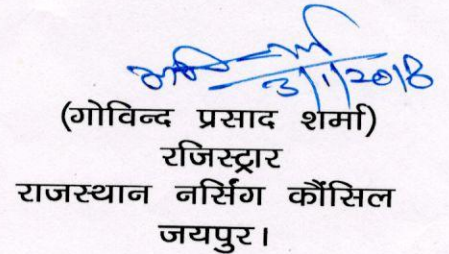 3/1/2018
(गोविन्द प्रसाद शर्मा)
रजिस्ट्रार
राजस्थान नर्सिंग कौंसिल
जयपुर।